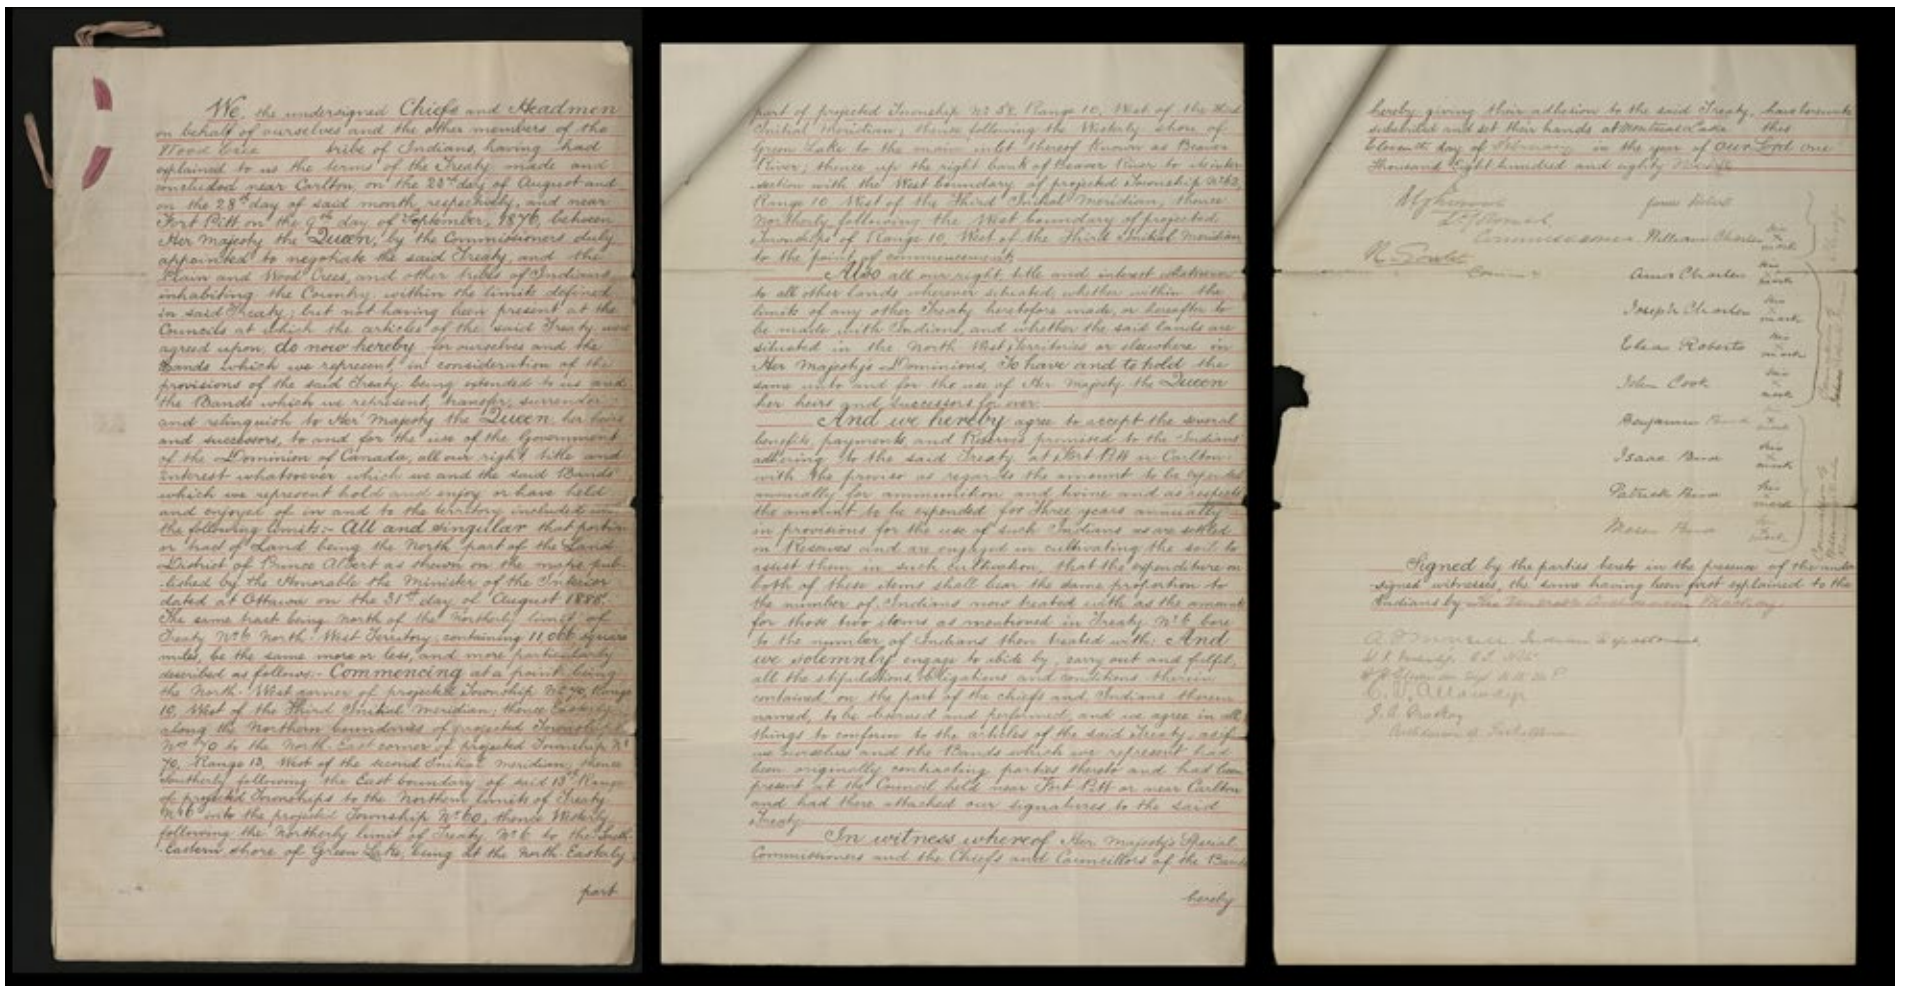 We, the undersigned Chiefs and Headmen
on behalf of ourselves and the other members of the
Wood Cree tribe of Indians, having had
explained to us the terms of the Treaty made and
concluded near Carlton, on the 23rd day of August and
on the 28th day of said month respectively, and near
Fort Pitt on the 9th day of September, 1876, between
Her Majesty the Queen, by the Commissioners duly
appointed to negotiate the said Treaty, and the
Plain and Wood Crees, and other tribes of Indians
inhabiting the Country, within the limits defined
in said Treaty; but not having been present at the
Councils at which the articles of the said Treaty were
agreed upon, do now hereby, for ourselves and the
Bands which we represent, in consideration of the
provisions of the said Treaty being extended to us and
the Bands which we represent, transfer, surrender
and relinquish to Her Majesty the Queen, her heirs
and successors, to and for the use of the Government
of the Dominion of Canada, all our right title and
interest whatsoever which we and the said Bands
which we represent hold and enjoy or have held
and enjoyed of in and to the territory included within
the following limits:- All and singular that portion
or tract of Land being the North part of the Land
District of Prince Albert as shown on the maps pub-
lished by the Honorable the Minister of the Interior
dated at Ottawa on the 31st day of August 1885.
The same tract being North of the Northerly limit of
Treaty No 6 North West Territory, containing 11,066 square
miles, be the same more or less, and more particularly
described as follows:- Commencing at a point being
the North-West corner of projected Township No 70, Range
10, West of the Third Initial Meridian; thence Easterly
along the Northern boundaries of projected Townships
No 70 to the North-East corner of projected Township No
70, Range 13, West of the second Initial meridian; thence
Southerly following the East boundary of said 13th Range
of projected Townships to the Northern limits of Treaty
No 6 into the projected Township No 60, thence Westerly
following the Northerly limit of Treaty No 6 to the South
Eastern shore of Green Lake, being at the North-Easterly
part
part of projected Township No 58 Range 10, West of the third
Initial Meridian; thence following the Westerly shore of
Green Lake to the main inlet thereof known as Beaver
River; thence up the right bank of Beaver River to its inter-
section with the West boundary of projected Township No 62,
Range 10 West of the Third Initial Meridian, thence
Northerly following the West boundary of projected
Townships of Range 10, West of the Third Initial Meridian
to the point of commencement.
Also all our right, title and interest whatsoever
to all other lands wherever situated, whether within the
limits of any other Treaty heretofore made, or hereafter to
be made with Indians, and whether the said lands are
situated in the North West Territories or elsewhere in
Her Majesty's Dominions, To have and to hold the
same unto and for the use of Her Majesty the Queen
her heirs and successors for ever.
And we hereby agree to accept the several
benefits, payments and Reserves promised to the Indians
adhering to the said Treaty at Fort Pitt or Carlton
with the proviso as regards the amount to be expended
annually for ammunition and twine and as respects
the amount to be expended for three years annually
in provisions for the use of such Indians as are settled
on Reserves and are engaged in cultivating the soil to
assist them in such cultivation, that the expenditure on
both of these items shall bear the same proportion to
the number of Indians now treated with as the amounts
for those two items as mentioned in Treaty No 6 bore
to the number of Indians then treated with: And
we solemnly engage to abide by, carry out and fulfil,
all the stipulations, obligations and conditions therein
contained on the part of the chiefs and Indians therein
named, to be observed and performed, and we agree in all
things to conform to the articles of the said Treaty, as if
we ourselves and the Bands which we represent had
been originally contracting parties thereto and had been
present at the Council held near Fort Pitt or near Carlton
and had there attached our signatures to the said
Treaty.
In witness whereof Her Majesty's Special
Commissioners and the Chiefs and Councillors of the Bands
hereby
hereby giving their adhesion to the said Treaty, have hereunto
subscribed and set their hands at Montreal Lake this
Eleventh day of February in the year of Our Lord one
thousand eight hundred and eighty
Commissioner
James Roberts
William Charles his x mark
Amos Charles his x mark
Joseph Charles his x mark
Elias Roberts his x mark
John Cook his x mark
Benjamin Bird his x mark
Isaac Bird his x mark
Patrick Bird his x mark
Moses Bird his x mark
Signed by the parties hereto in the presence of the under-
signed witnesses, the same having been first explained to the
Indians by